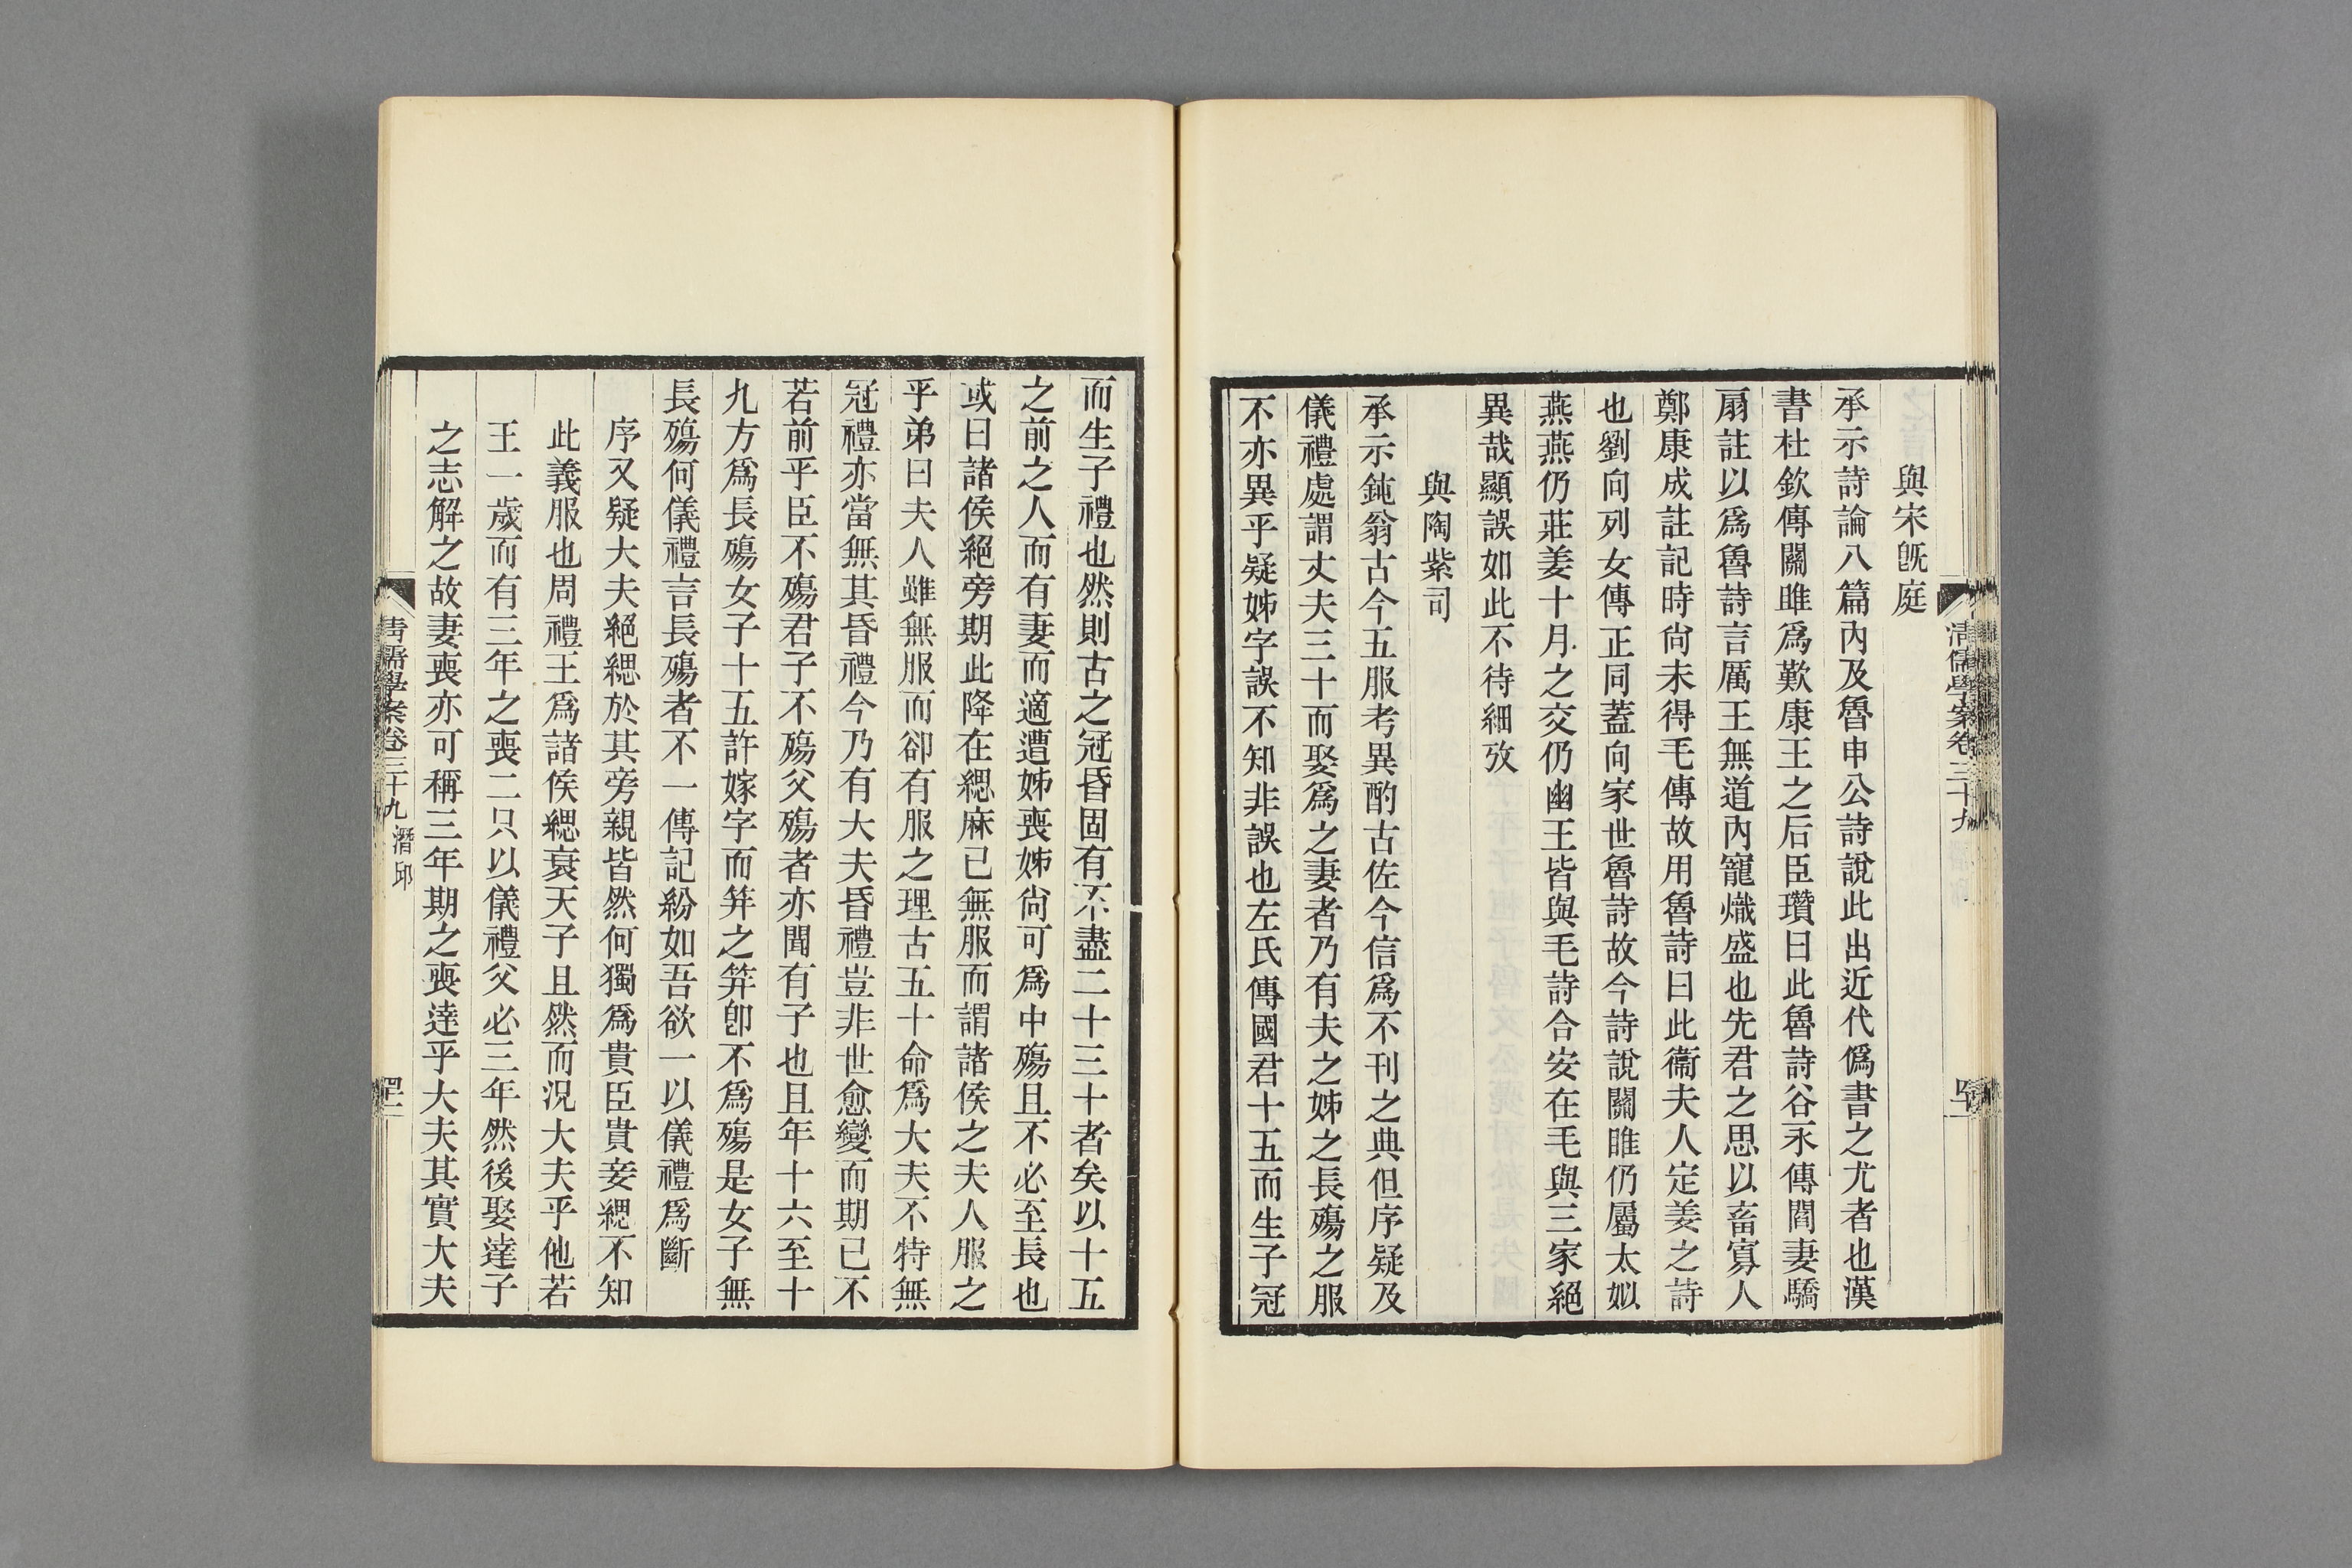 與宋旣庭
承示詩論八篇內及魯申公詩說此出近代僞書之尤者也漢
書杜欽傳關雎爲歎康王之后臣瓚曰此魯詩谷永傳閻妻驕
扇註以爲魯詩言厲王無道內寵熾盛也先君之思以畜寡人
鄭康成註記時尙未得毛傳故用魯詩曰此衞夫人定姜之詩
也劉向列女傳正同蓋向家世魯詩故今詩說關雎仍屬太姒
燕燕仍莊姜十月之交仍幽王皆與毛詩合安在毛與三家絕
異哉顯誤如此不待細攷
與陶紫司
承示鈍翁古今五服考異酌古佐今信爲不刊之典但序疑及
儀禮處謂丈夫三十而娶爲之妻者乃有夫之姊之長殤之服
不亦異乎疑姊字誤不知非誤也左氏傳國君十五而生子冠
清儒學案卷三十九
而生子禮也然則古之冠昏固有不盡二十三十者矣以十五
之前之人而有妻而適遭姊喪姊尙可爲中殤且不必至長也
或曰諸侯絕旁期此降在緦麻已無服而謂諸侯之夫人服之
乎弟曰夫人雖無服而卻有服之理古五十命爲大夫不特無
冠禮亦當無其昏禮今乃有大夫昏禮豈非世愈變而期已不
若前乎臣不殤君子不殤父殤者亦聞有子也且年十六至十
九方爲長殤女子十五許嫁字而笄之笄卽不爲殤是女子無
長殤何儀禮言長殤者不一傳記紛如吾欲一以儀禮爲斷
序又疑大夫絕緦於其旁親皆然何獨爲貴臣貴妾緦不知
此義服也周禮王爲諸侯緦衰天子且然而況大夫乎他若
王一歲而有三年之喪二只以儀禮父必三年然後娶達子
之志解之故妻喪亦可稱三年期之喪達乎大夫其實大夫
清儒學案卷三十九 潛邱